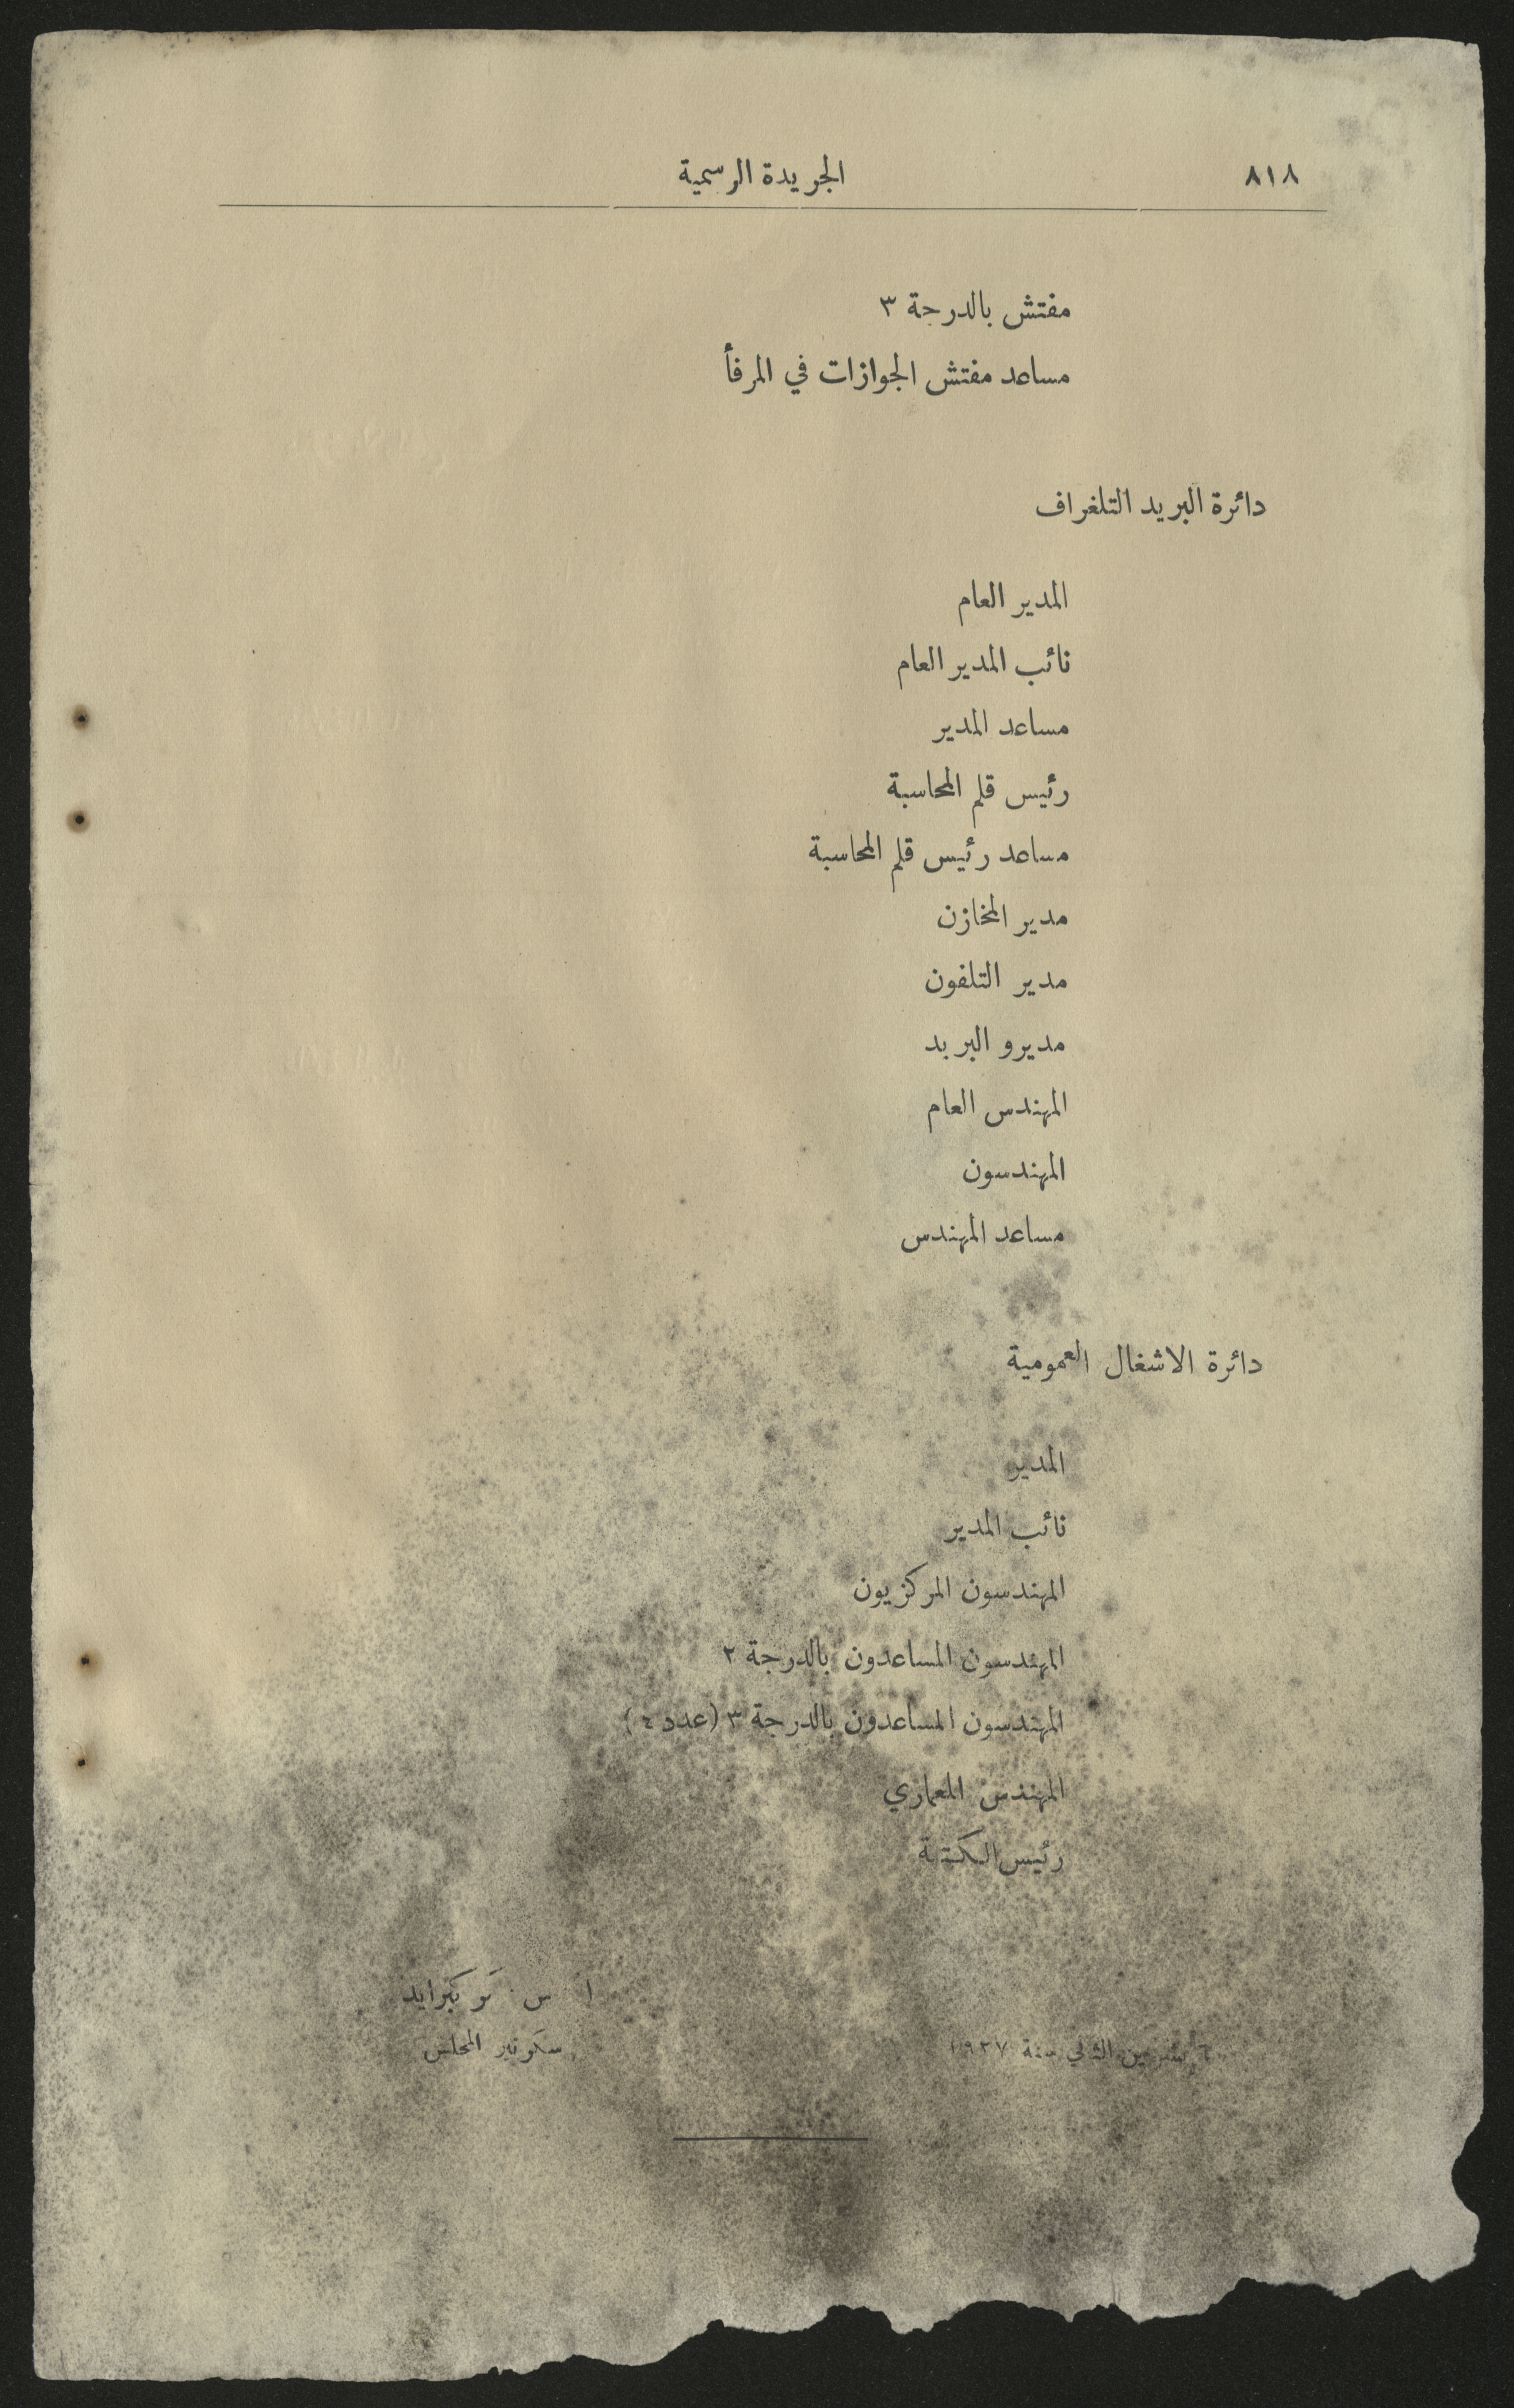 ٨١٨
الجريدة الرسمية
مفتش بالدرجة ٣
مساعد مفتش الجوازات في المرفأ
دائرة البريد التلغراف
المدير العام
نائب المدير العام
مساعد المدير
رئيس قلم المحاسبة
مساعد رئيس قلم المحاسبة
مدير المخازن
مدير التلفون
مديرو البريد
المهندس العام
المهندسون
مساعد المهندس
دائرة الاشغال العمومية
المدير
نائب المدير
المهندسون المركزيون
المهندسون المساعدون بالدرجة ٢
المهندسون المساعدون بالدرجة ٣ (عدد ٤)
المهندس المعماري
رئيس الكتبة
ا س
سكرتير المجلس
تشرين الثاني سنة ١٩٢٧